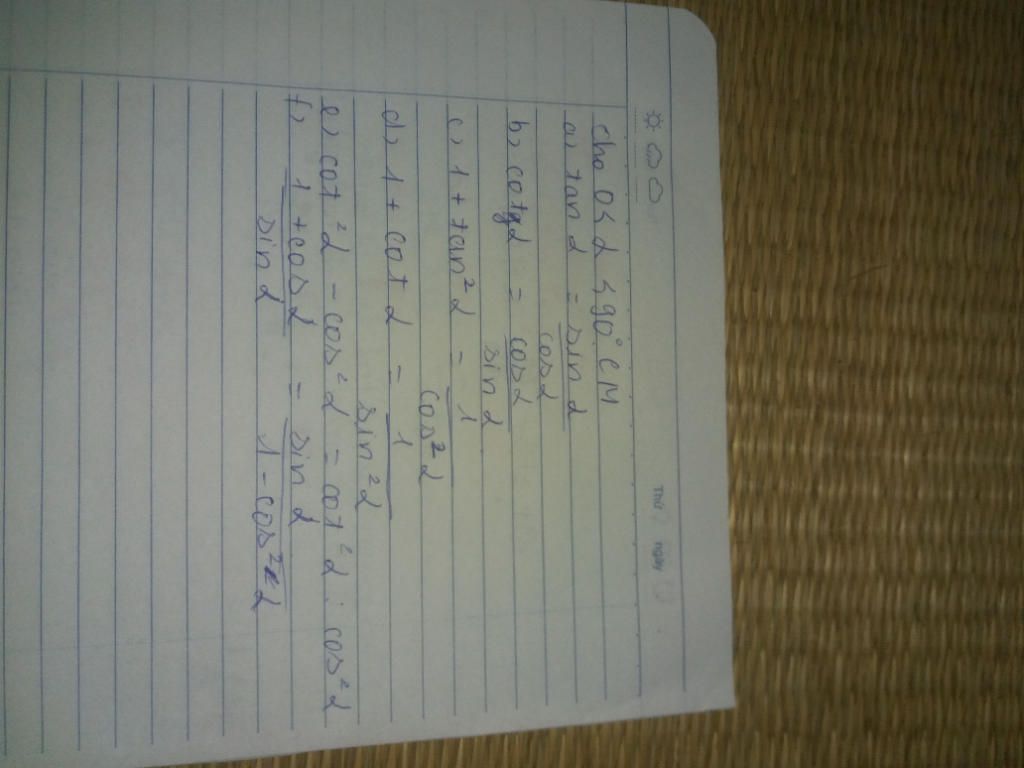 Thứ ngày
cho 0 < α < 90° CM
a, tan α = sin α / cos α
b, cotg α = cos α / sin α
c, 1 + tan² α = 1 / cos² α
d, 1 + cot α = 1 / sin² α
e, cot² α - cos² α = cot² α . cos² α
f, 1 + cos α / sin α = sin α / 1 - cos² α